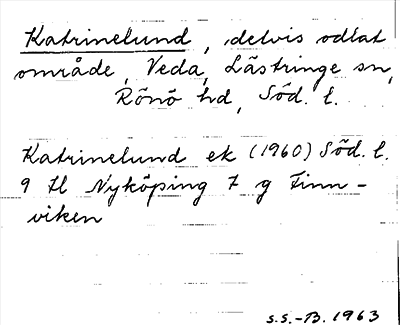 Katrinelund, delvis odlat
område, Veda, Lästringe sn,
Rönö hd, Söd. l.
Katrinelund ek (1960) Söd. l.
9 H Nyköping 7 g Finn-
viken
S.S.-B. 1963